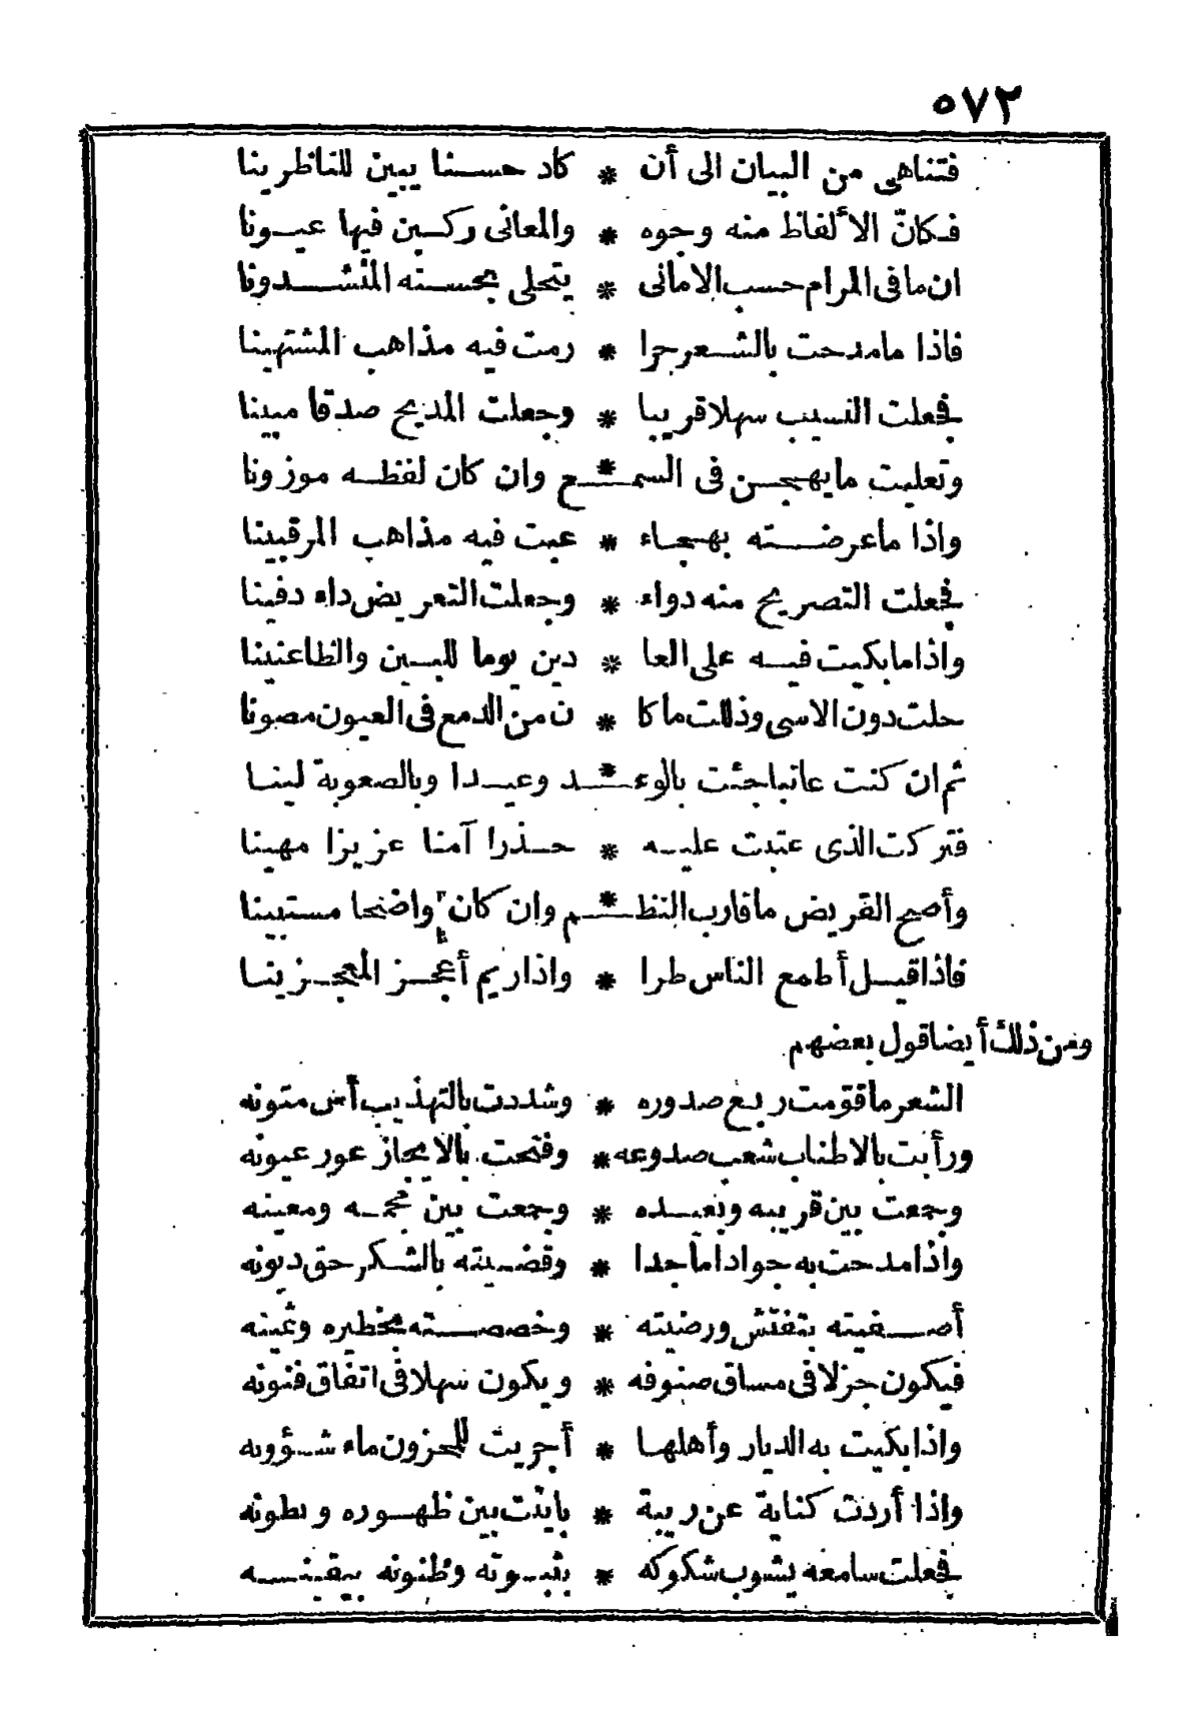 ٥٧٢
فتناهى من البيان الى أن * كاد حسنا يبين للناظرينا
فكانّ الألفاظ منه وجوه * والمعانى ركبن فيها عيونا
ان مافى المرام حسب الامانى * يتحلى بحسنه المنشدونا
فاذا مامدحت بالشعر حرا * رمت فيه مذاهب المشتهينا
فجعلت النسيب سهلا قريبا * وجعلت المديح صدقا مبينا
وتعليت مايهجن فى السمـ * ـع وان كان لفظه موزونا
واذا ماعرضته بهجاء * عبت فيه مذاهب المرقبينا
فجعلت التصريح منه دواء * وجعلت التعريض داء دفينا
واذا مابكيت فيه على العا * دين يوما للبين والظاعنينا
حلت دون الاسى وذللت ما كا * ن من الدمع فى العيون مصونا
ثم ان كنت عاتبا جئت بالوعـ * ـد وعيدا وبالصعوبة لينا
فتركت الذى عتبت عليه * حذرا آمنا عزيزا مهينا
وأصح القريض ماقارب النظـ * ـم وان كان واضحا مستبينا
فاذا قيل أطمع الناس طرا * واذا ريم أعجز المعجزينا
ومن ذلك أيضا قول بعضهم
الشعر ماقومت ربع صدوره * وشددت بالتهذيب أس متونه
ورأبت بالاطناب شعب صدوعه * وفتحت بالايجاز عور عيونه
وجمعت بين قريبه وبعيده * وجمعت بين مجمه ومعينه
واذا مدحت به جوادا ماجدا * وقضيته بالشكر حق ديونه
أصفيته بتفتش ورضيته * وخصصته بخطيره وثمينه
فيكون جزلا فى مساق صنوفه * ويكون سهلا فى اتفاق فنونه
واذا بكيت به الديار وأهلها * أجريت للمحزون ماء شؤونه
واذا أردت كناية عن ريبة * باينت بين ظهوره وبطونه
فجعلت سامعه يشوب شكوكه * بثبوته وظنونه بيقينه